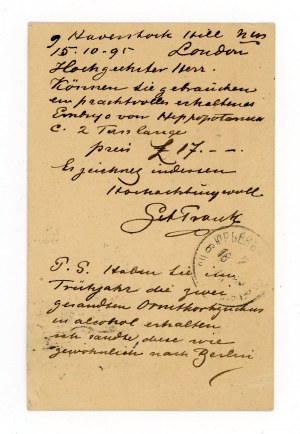 9 Haverstock Hill NW
15-10-95 London
Hochgeehrter Herr.
Können Sie gebrauchen
ein prachtvolles erhaltenes
Embryo von Hippopotamus
c. 2 Fuss lange
preis £17.--
Es zeichnet indessen
Hochachtungsvoll
P.S. Haben Sie im
Frühjahr die zwei
gesandten Ornithorhynchus
in alcohol erhalten
ich sandte diese wie
gewöhnlich nach Berlin